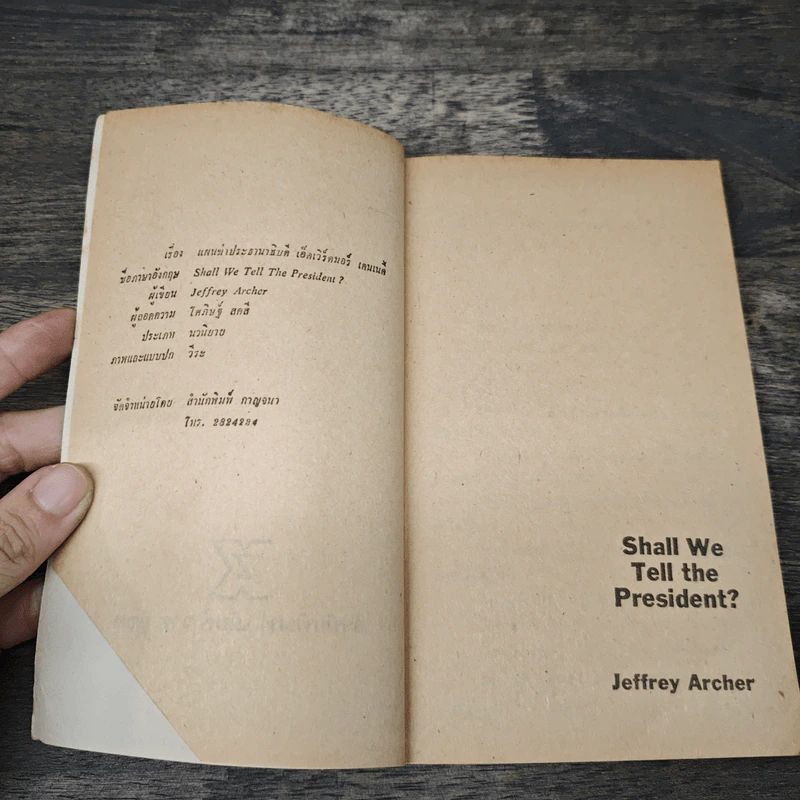 เรื่อง แผนฆ่าประธานาธิบดี เอ็ดเวิร์ดมอร์ เคนเนดี้
ชื่อภาษาอังกฤษ Shall We Tell The President?
ผู้เขียน Jeffrey Archer
ผู้ถอดความ โศภิษฐ์ สดสี
ประเภท นวนิยาย
ภาพและแบบปก วีระ
จัดจำหน่ายโดย สำนักพิมพ์ กาญจนา
โทร. 2824234
Shall We
Tell the
President?
Jeffrey Archer